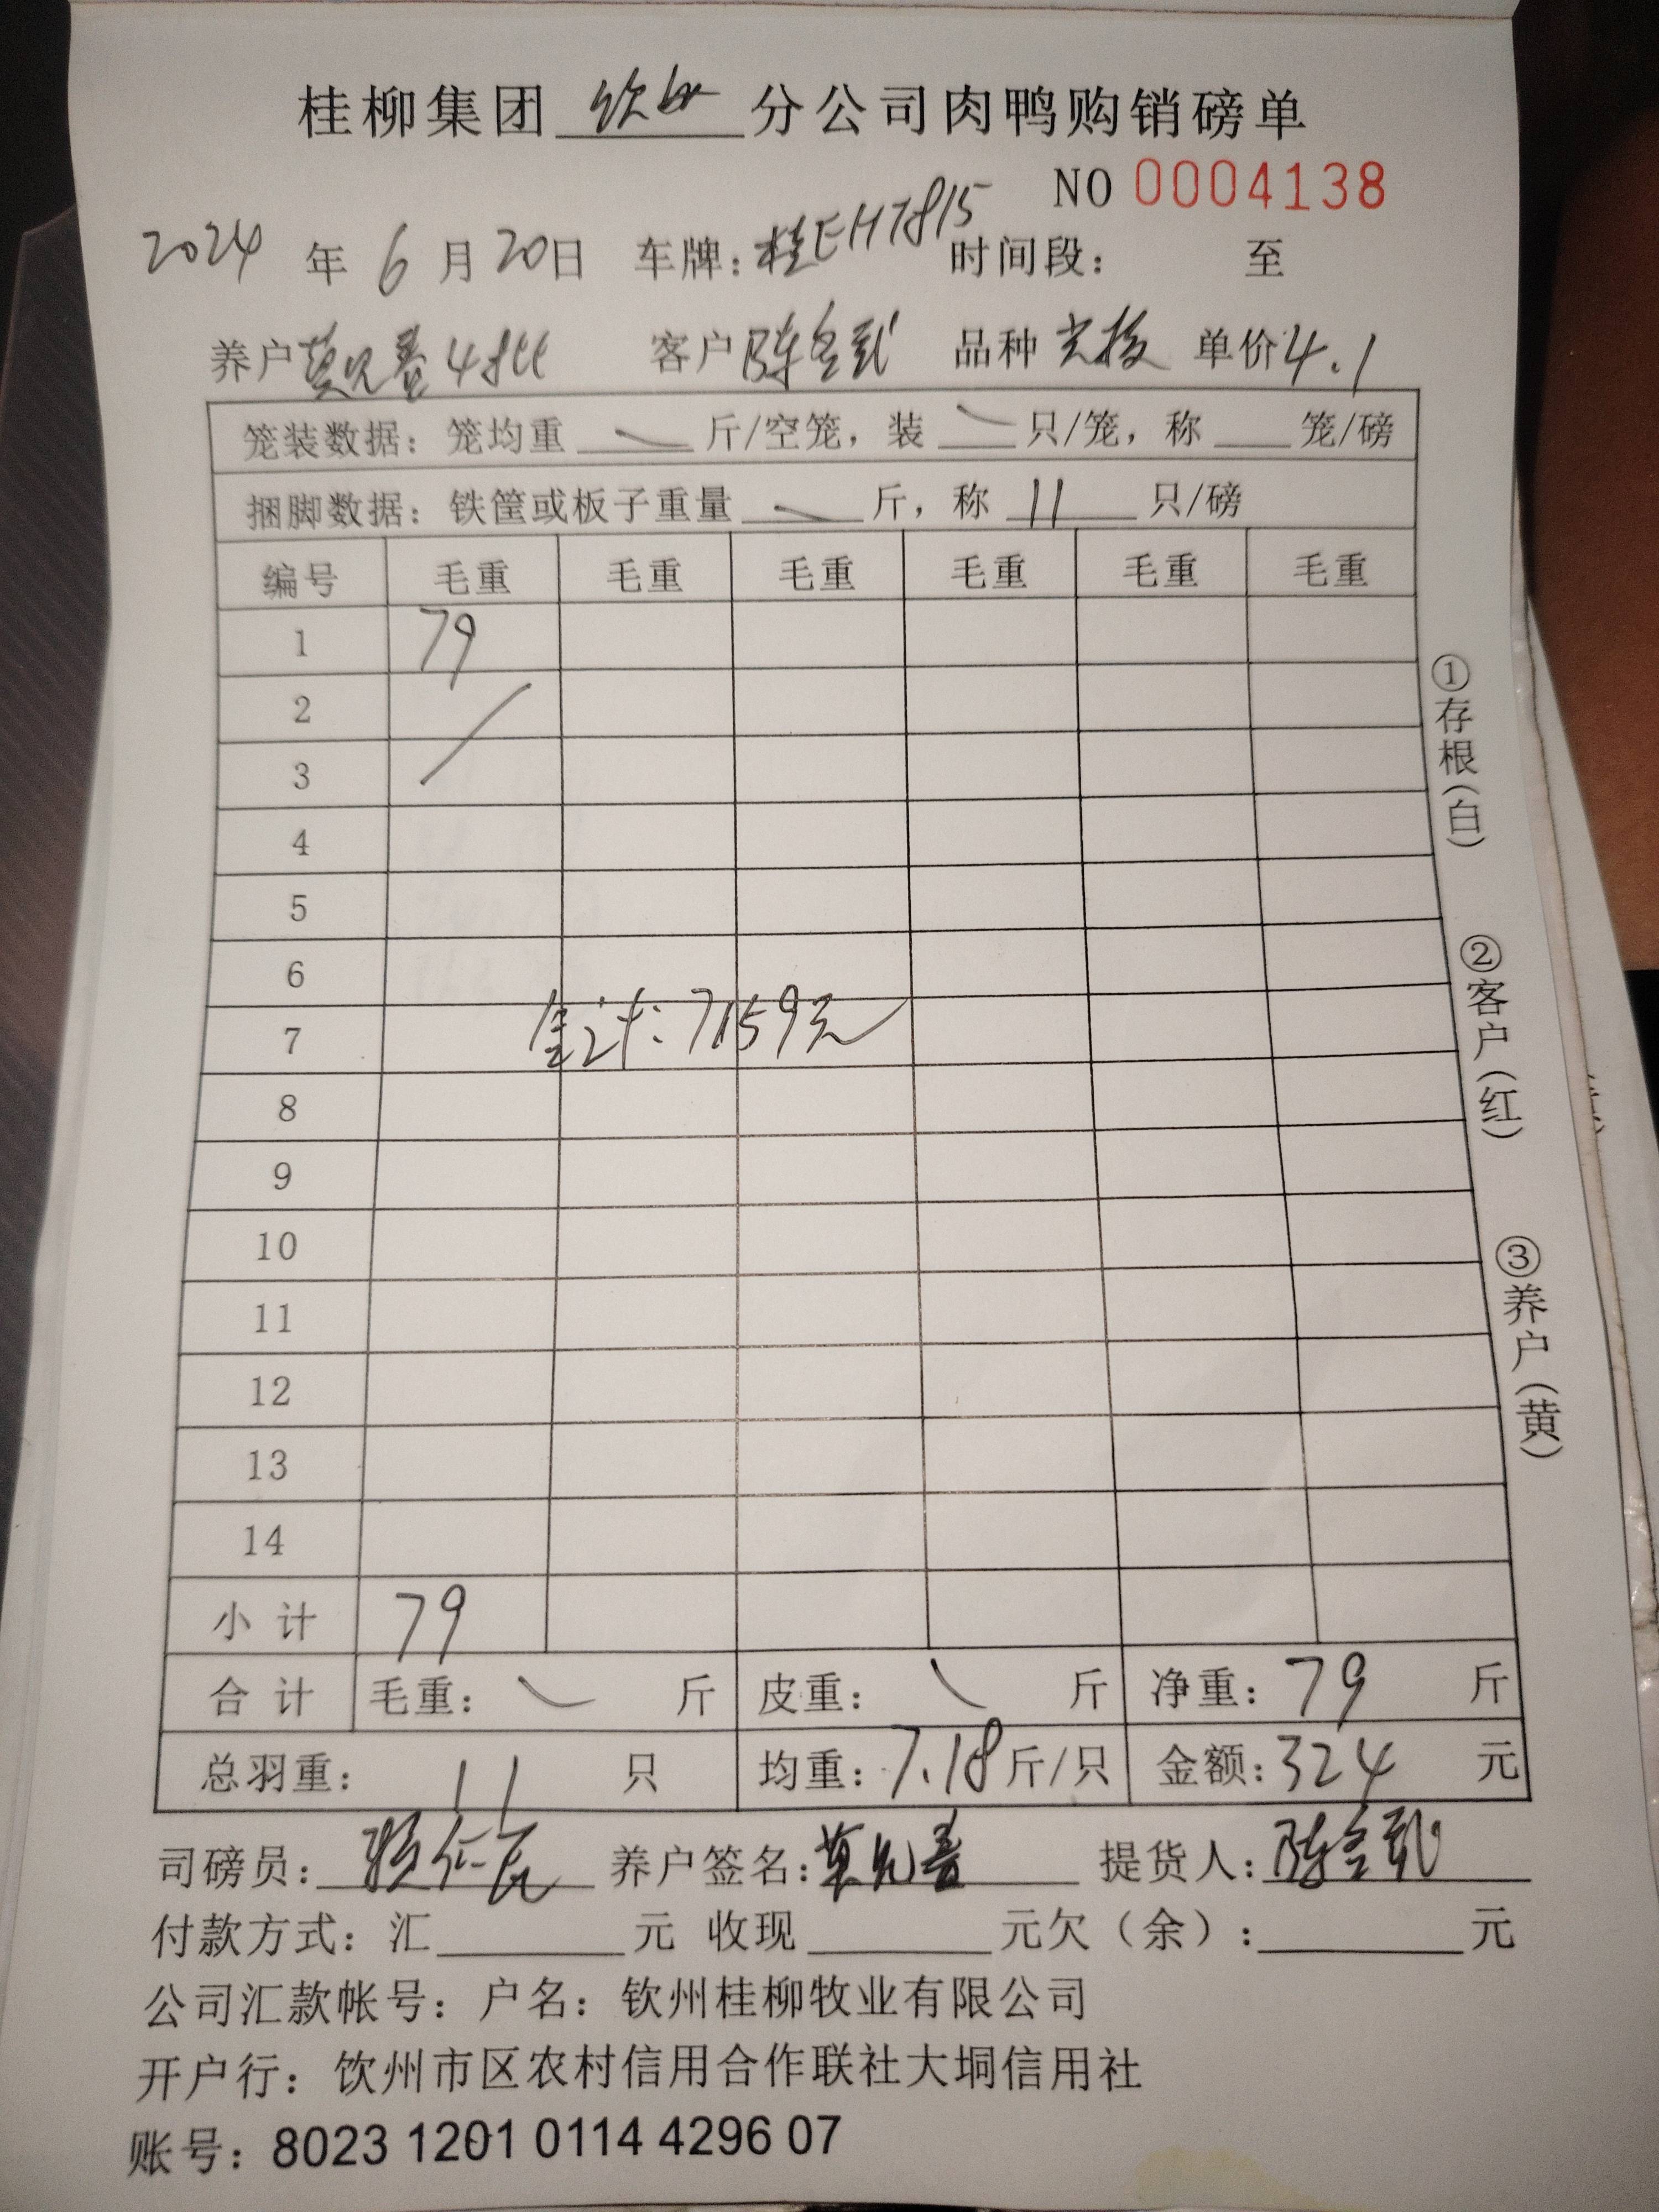 桂柳集团 钦州 分公司肉鸭购销磅单
NO 0004138
2024 年 6 月 20日 车牌：桂EH7815 时间段： 至
养户 客户 陈 品种 单价4.1
笼装数据：笼均重 斤/空笼，装 只/笼，称 笼/磅
捆脚数据：铁筐或板子重量 斤，称 11 只/磅
编号 毛重 毛重 毛重 毛重 毛重 毛重
1 79
2
3
4
5
6
7 7159元
8
9
10
11
12
13
14
小 计 79
合 计 毛重： 斤 皮重： 斤 净重：79 斤
总羽重： 11 只 均重：7.18斤/只 金额：324 元
①存根（白）
②客户（红）
③养户（黄）
司磅员： 养户签名： 提货人：陈
付款方式：汇 元 收现 元欠（余）： 元
公司汇款帐号：户名：钦州桂柳牧业有限公司
开户行：钦州市区农村信用合作联社大垌信用社
账号：8023 1201 0114 4296 07